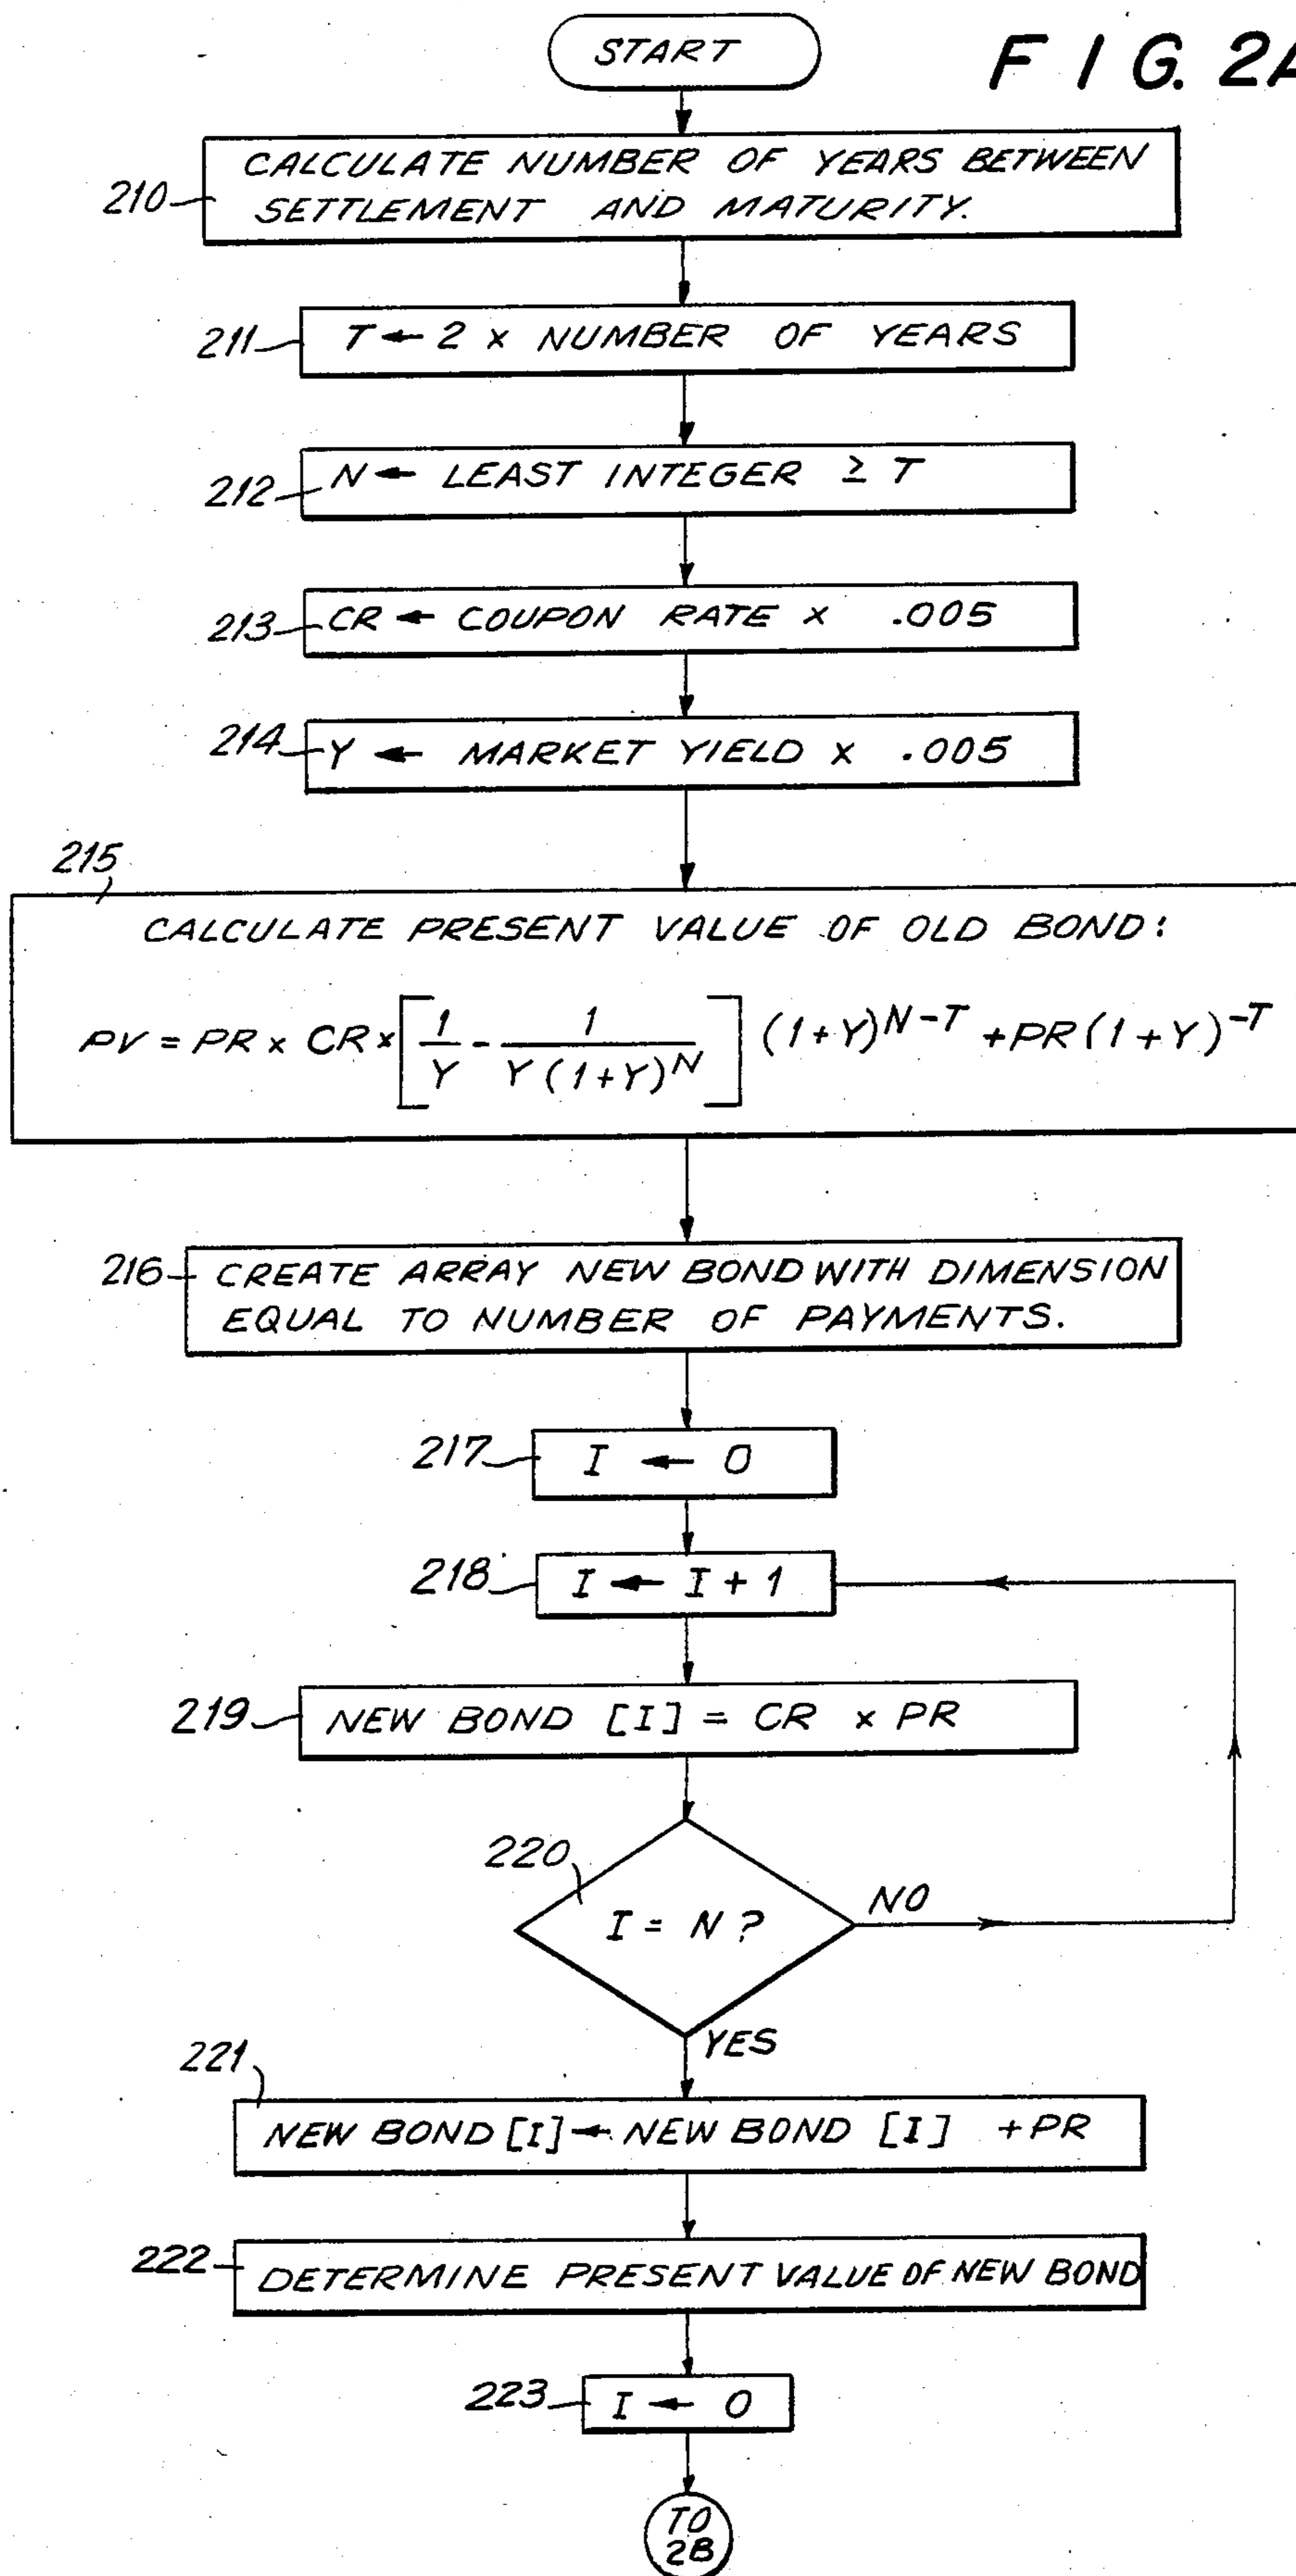 START
F I G. 2A
CALCULATE NUMBER OF YEARS BETWEEN
210
SETTLEMENT AND MATURITY.
211
T ← 2 x NUMBER OF YEARS
212
N ← LEAST INTEGER ≥ T
213
CR ← COUPON RATE x .005
214
Y ← MARKET YIELD x .005
215
CALCULATE PRESENT VALUE OF OLD BOND:
PV = PR x CR x [1/Y - 1/Y(1+Y)^N] (1+Y)^N-T + PR(1+Y)^-T
216
CREATE ARRAY NEW BOND WITH DIMENSION
EQUAL TO NUMBER OF PAYMENTS.
217
I ← 0
218
I ← I + 1
219
NEW BOND [I] = CR x PR
220
I = N ?
NO
YES
221
NEW BOND [I] ← NEW BOND [I] + PR
222
DETERMINE PRESENT VALUE OF NEW BOND
223
I ← 0
TO
2B